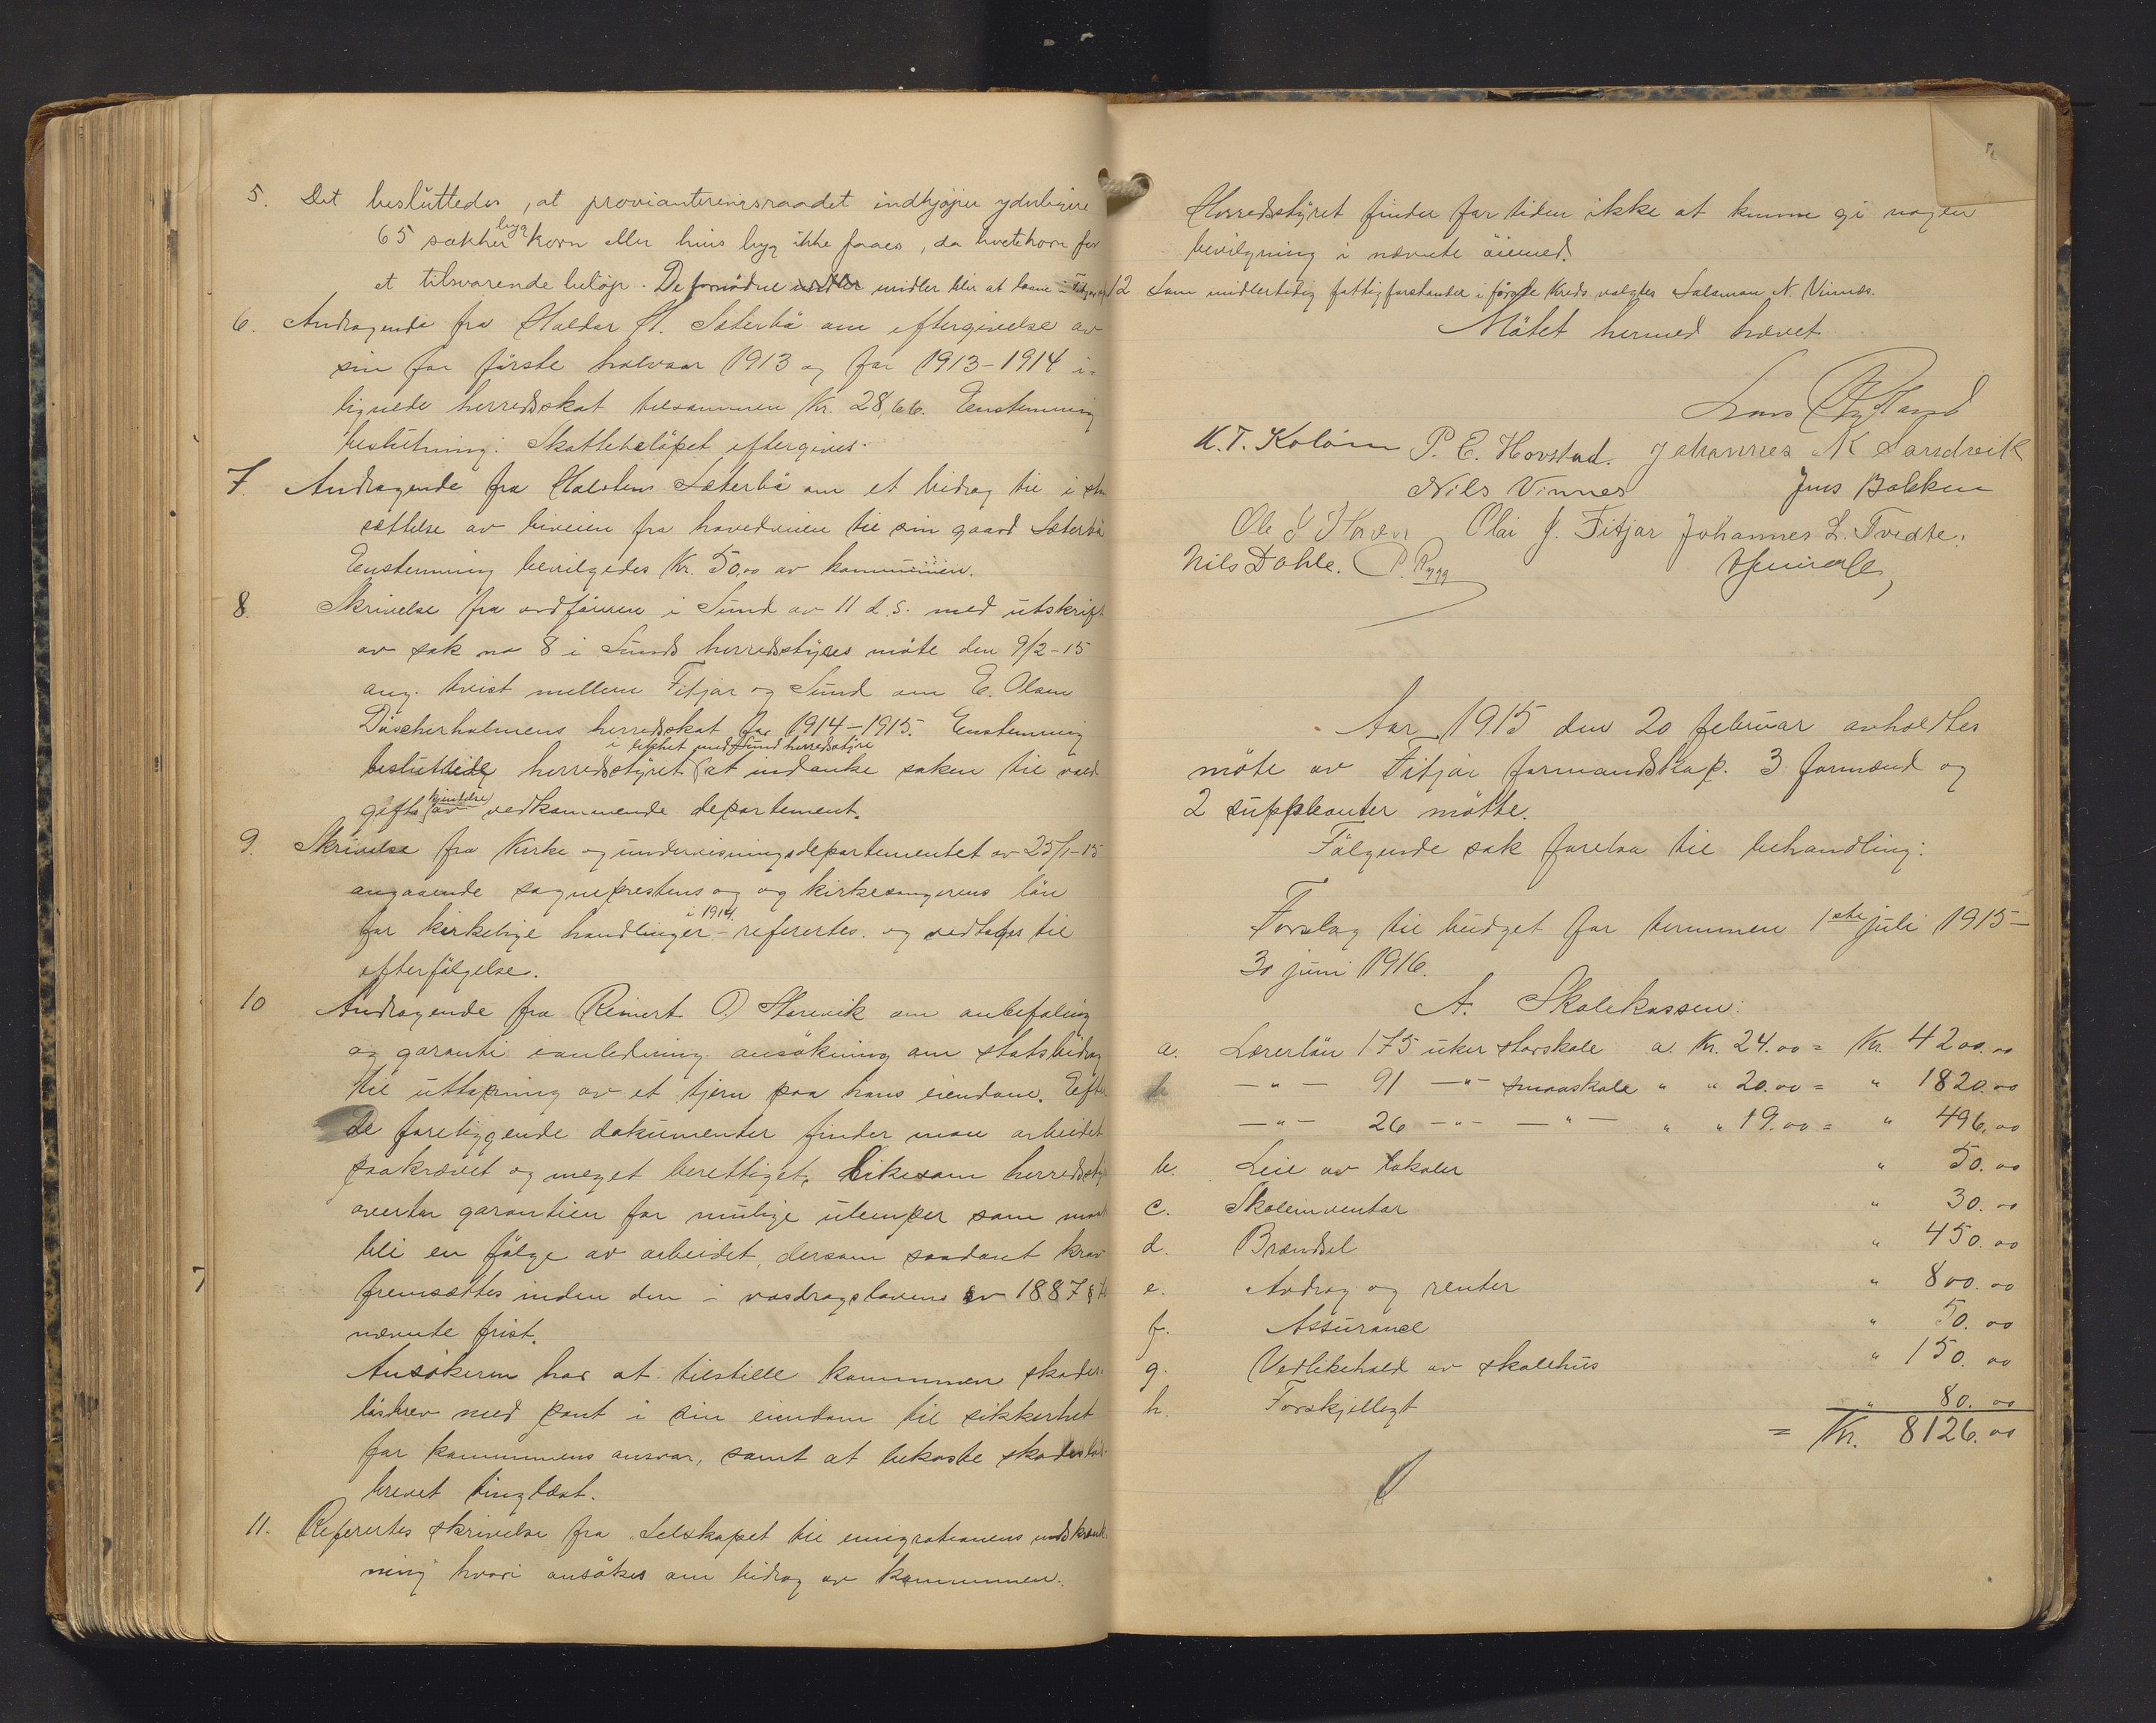 5. Det besluttedes, at provianteringsraadet indkjøper yderligere
65 sækker byg korn eller hvis byg ikke faaes, da hvetekorn for
et tilsvarende beløp. De fornødne midler midler blir at laane i
6. Andragende fra Haldor H. Sæterbø om eftergivelse av
sin for første halvaar 1913 og for 1913-1914 i-
lignede herredsskat tilsammen Kr. 28,66. Enstemmig
beslutning: Skattebeløpet eftergives.
7. Andragende fra Halstein Sæterbø om et bidrag til i
sættelse av biveien fra hovedveien til sin gaard Sæterbø
Enstemmig bevilgedes Kr. 50,00 av kommunen.
8. Skrivelse fra ordføreren i Sund av 11 d.s. med utskrift
av sak no 8 i Sunds herredsstyres møte den 9/2-15
ang. tvist mellem Fitjar og Sund om E. Olsen
herredsskat for 1914-1915. Enstemmig
i likhet med Sund herredsstyre
besluttede herredsstyret at indanke saken til vold-
gifts kjendelse av vedkommende departement.
9. Skrivelse fra Kirke og undervisningsdepartementet av 25/1-15
angaaende sogneprestens og og kirkesangerens løn
for kirkelige handlinger i 1914 - refertes. og vedtages til
efterfølgelse.
10 Andragende fra Reinert O Storevik om anbefaling
og garanti ianledning ansøkning om statsbidrag
til uttapning av et tjern paa hans eiendom. Efter
de foreliggende dokumenter finder man arbeidet
paakrævet og meget berettiget, likesom herredssty
overtar garantien for mulige ulemper som maat
bli en følge av arbeidet, dersom saadant krav
fremsættes inden den i vasdragslovens av 1887 §
nævnte frist.
Ansøkeren har at tilstille kommunen skades-
løsbrev med pant i sin eiendom til sikkerhet
for kommunens ansvar, samt at bekoste skadesløs-
brevet tinglæst.
11. Refertes skrivelse fra Selskapet til emigrationens indskrænk-
ning hvori ansøkes om bidrag av kommunen.
Herredsstyret finder for tiden ikke at kunne gi nogen
bevilgning i nævnte øiemed.
12 Som midlertidig fattigforstander i første Kreds valgtes Salomon N. Vinnes.
Møtet hermed hævet
Lars Rydland
K. T. Koløen P. E. Hovstad. Johannes N Sandvik
Nils Vinnes Jens Bakken
Ole J Haven Olai J. Fitjar Johannes L. Tvedte.
Nils Dahle. P. Rygg
Aar 1915 den 20 februar avholdtes
møte av Fitjar formandskap. 3 formænd og
2 suppleanter møtte.
Følgende sak foretoges til behandling:
Forslag til budget for terminen 1ste juli 1915-
30 juni 1916.
A. Skolekassen:
a. Lærerløn 175 uker storskole a. Kr. 24.00 = Kr. 4200.00
b -"- 91 -"- smaaskole " " 20.00 = " 1820.00
-"- 26 -"- -"- " " 19.00 = " 496.00
b. Leie av lokaler " 50.00
c. Skoleinventar " 30.00
d. Brændsel " 450.00
e. Avdrag og renter " 800.00
f. Assurance " 50.00
g. Vedlikehold av skolehus " 150.00
h. Forskjelligt " 80.00
= Kr. 8126.00